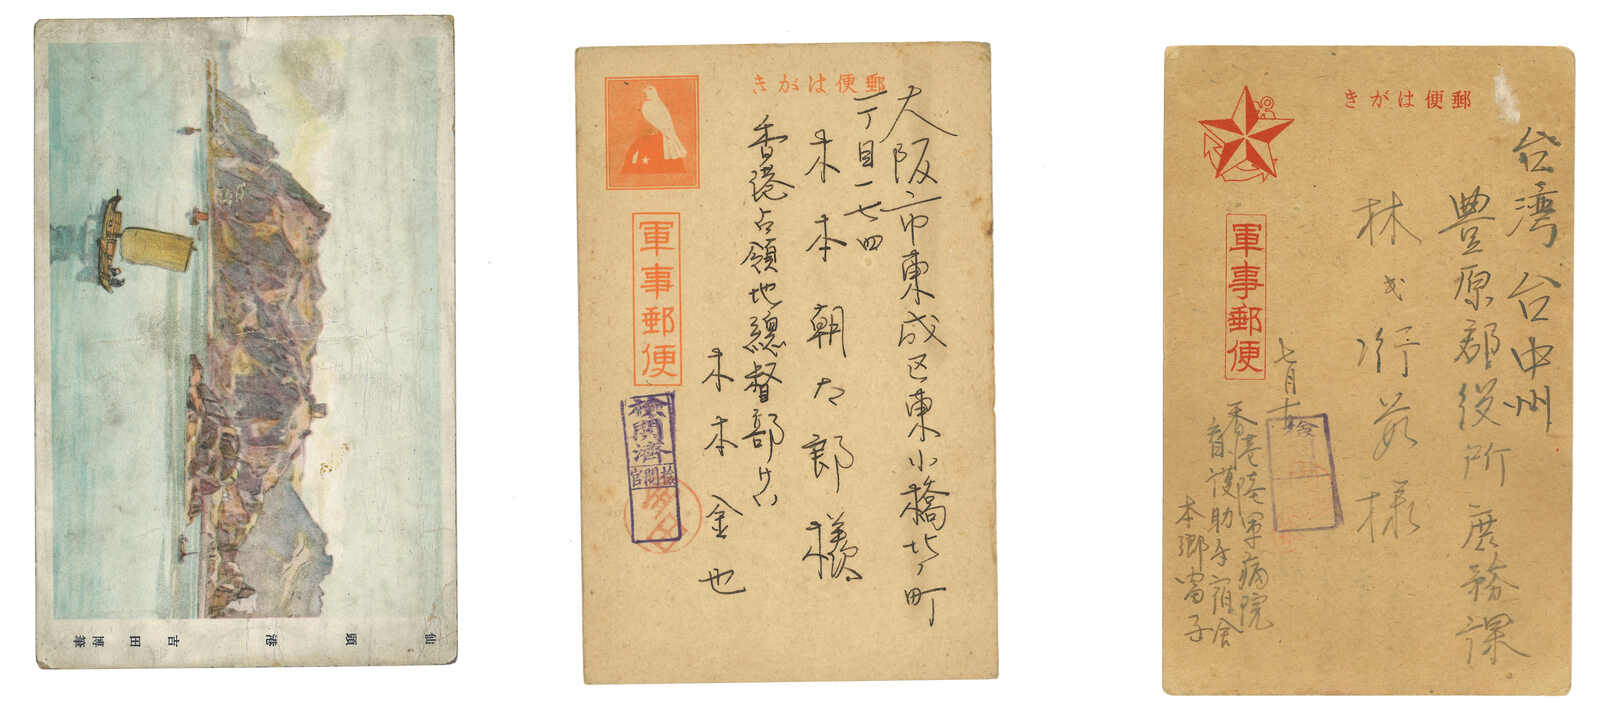 仙頭港
吉田博筆
郵便はがき
軍事郵便
検閲済
検閲官
大阪市東成区東小橋北ノ町
一丁目一七四
木本朝太郎様
香港占領地總督部
木本金也
郵便はがき
軍事郵便
台湾台中州
豊原郡役所庶務課
林
様
七月
香港陸軍病院
看護助手宿舍
本郷富子